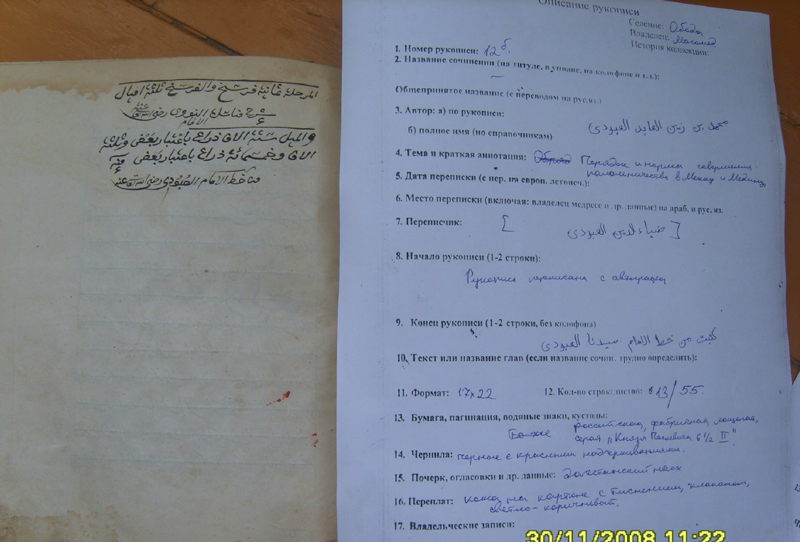 المرحلة ثمانية فرسخ والفرسخ ثلاثة اميال
شرح مناسك النووي رضي الله عنه
الامام
والميل ستة آلاف ذراع باعتبار بعض وثلاثة
آلاف وخمسمائة ذراع باعتبار بعض
من خط الامام العبودي رضي الله عنه
Описание рукописи
Селение: Обода
Владелец: Магомед
История коллекции.
1. Номер рукописи: 12б.
2. Название сочинения (на титуле, в унване, на колофоне и т.д.):
Общепринятое название (с переводом на рус.яз.)
3. Автор: а) по рукописи:
б) полное имя (по справочникам) محمد بن زين العابد العبودي
4. Тема и краткая аннотация: Порядок и нормы совершения
паломничества в Мекку и Медину
5. Дата переписки (с пер. на европ. летоисч.):
6. Место переписки (включая: владелец медресе и др. данные) на араб. и рус. яз.
7. Переписчик: [ ضياء الدين العبودي ]
8. Начало рукописи (1-2 строки):
Рукопись переписана с автографа
9. Конец рукописи (1-2 строки, без колофона)
كتبت من خط الامام سيدنا العبودي
10. Текст или название глав (если название сочин. трудно определить):
11. Формат: 17x22 12. Кол-во строк/листов: 13/55.
13. Бумага, пагинация, водяные знаки, кустоды:
российская, фабричная, лощеная,
серая "Князя Паскевича 6 1/2 II".
14. Чернила: черные с красными надчеркиваниями.
15. Почерк, огласовки и др. данные: Дагестанский насх
16. Переплет: кожа на картоне с тиснением, клапаном,
светло-коричневый.
17. Владельческие записи:
30/11/2008 11:22